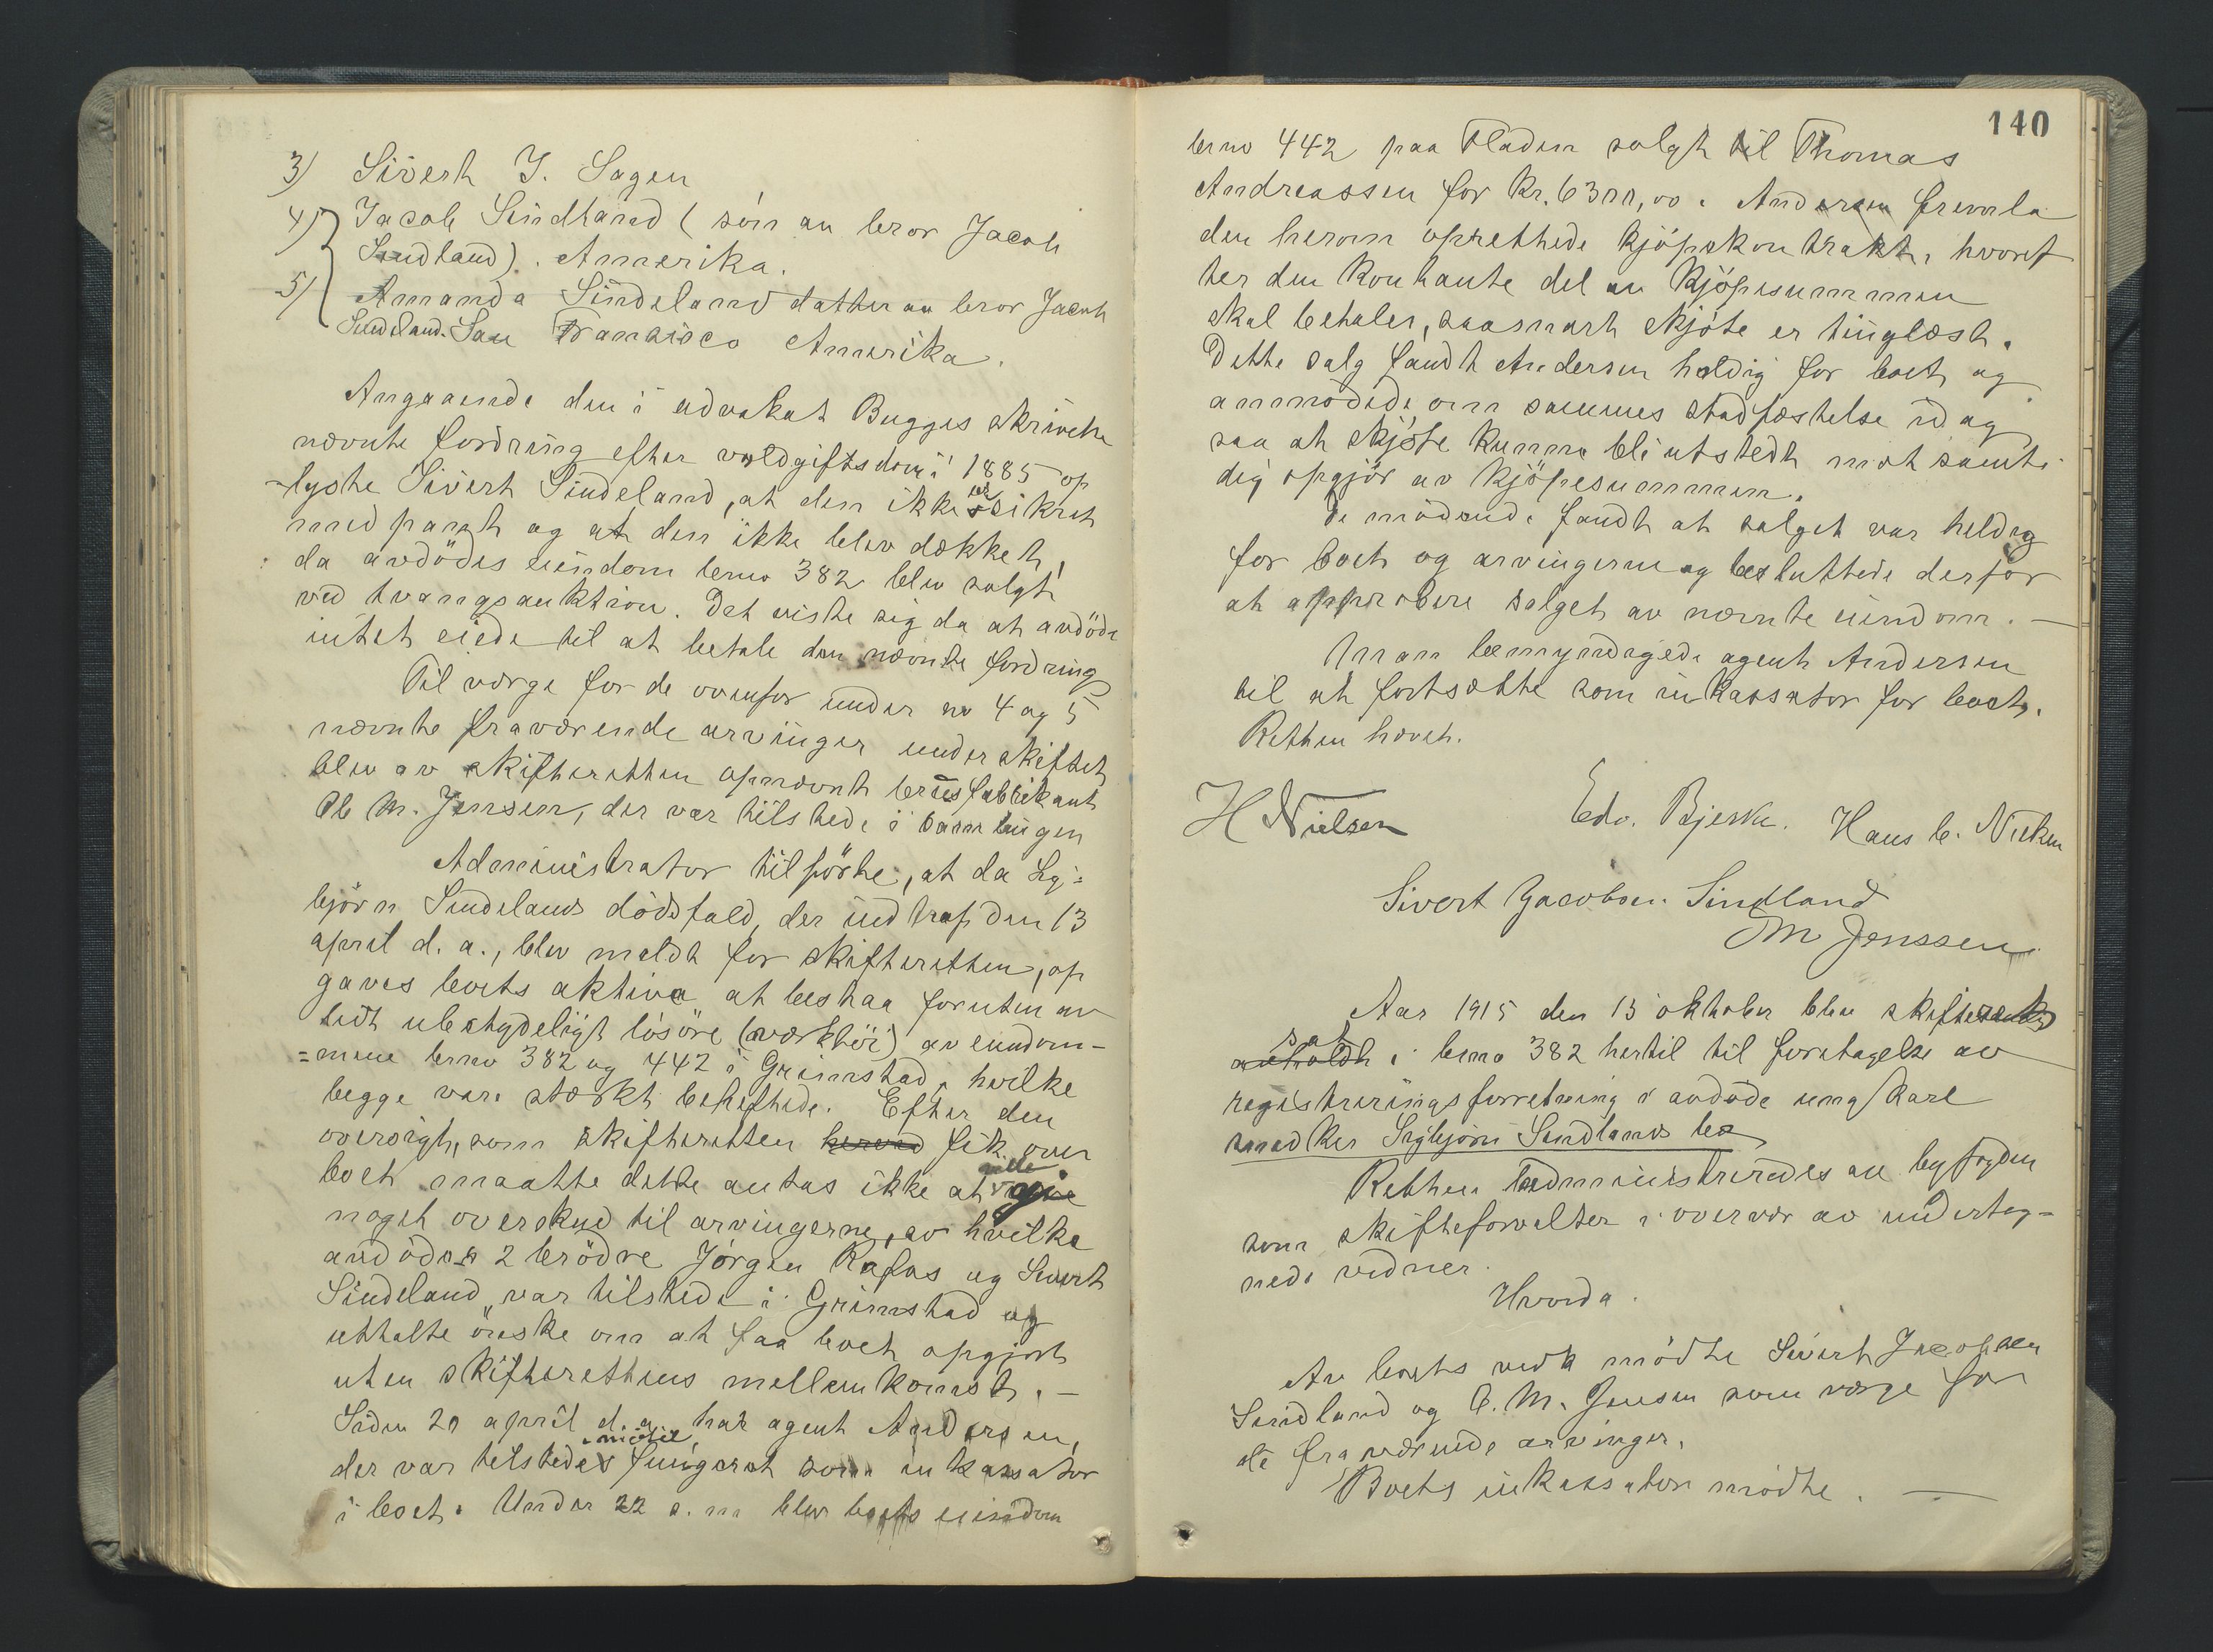 3) Sivert J. Sagen
4) Jacob Sindland (søn au bror Jacob
Sindland). Amerika.
5) Amanda Sindeland datter au bror Jacob
Sindeland. San Fransisco Amerika.
Angaaende den i advokat Bugges skrivelse
nævnte fordring efter voldgiftsdom i 1885 op
-lyste Sivert Sindeland, at den ikke er sikret
med pant og at den ikke blev dækket,
da avdödes eiendom brno 382 blev solgt
ved tvangsauktion. Det viste sig da at avdöde
intet eiede til at betale den nævnte fordring
Til verge for de ovenfor under no 4 og 5
nævnte fraværende arvinger under skiftet
blev av skifteretten opnævnt brusfabrikant
O M. Jensen, der var tilstede i samlingen
Administrator tilförte, at da Sig=
björn Sindelands dödsfald, der indtraf den 13
april d. a., blev meldt for skifteretten, op
gaves boets aktiva at bestaa foruten av
lidt ubetydeligt lösöre (værktöi) av eiendom-
=mene brno 382 og 442 i Grimstad, hvilke
begge vare stærkt beheftede. Efter den
oversigt, som skifteretten herved fik over
boet maatte dette antas ikke at gi
noget overskud til arvingerne, av hvilke
avdödes 2 brödre Jörgen Rafos og Sivert
Sindeland, var tilstede i Grimstad og
uttalte önske om at faa boet opgjort
uten skifterettens mellemkomst. —
Siden 20 april d. a. har agent Andersen,
der var tilstede, fungeret som inkassator
i boet. Under 22 s. m blev boets eiendom
140
brno 442 paa Fladen solgt til Thomas
Andreassen for kr. 6300,00. Andersen fremla
den herom oprettede kjöpskontrakt, hvoref
ter den kontante del av kjöpesummen
skal betales, saasnart skjöte er tinglæst.
Dette salg fandt Andersen heldig for boet og
anmodede om sammes stadfæstelse idag
saa at skjöte kunne bli utstedt mot samti
dig opgjör av kjöpesummen.
De mödende fandt at salget var heldig
for boet og arvingerne og besluttede derfor
at approbere salget av nævnte eiendom. —
Man bemyndigede agent Andersen
til at fortsætte som inkassator for boet.
Retten hævet.
H Nielsen Edv. Bjerke. Hans C. Nielsen
Sivert Jacobsen Sindland
O M Jenssen
Aar 1915 den 13 oktober blev skifteret
sat
avholdt i brno 382 hertil til foretagelse av
registreringsforretning i avdöde ungkarl
snedker Sigbjörn Sindlands bo
Retten administreredes au byfogden
som skifteforvalter i overvær av underteg-
nede vidner.
Hvorda.
Av boets vedk mödte Sivert Jacobsen
Sindland og O. M. Jensen som verge for
de fraværende arvinger.
Boets inkassator mödte. —